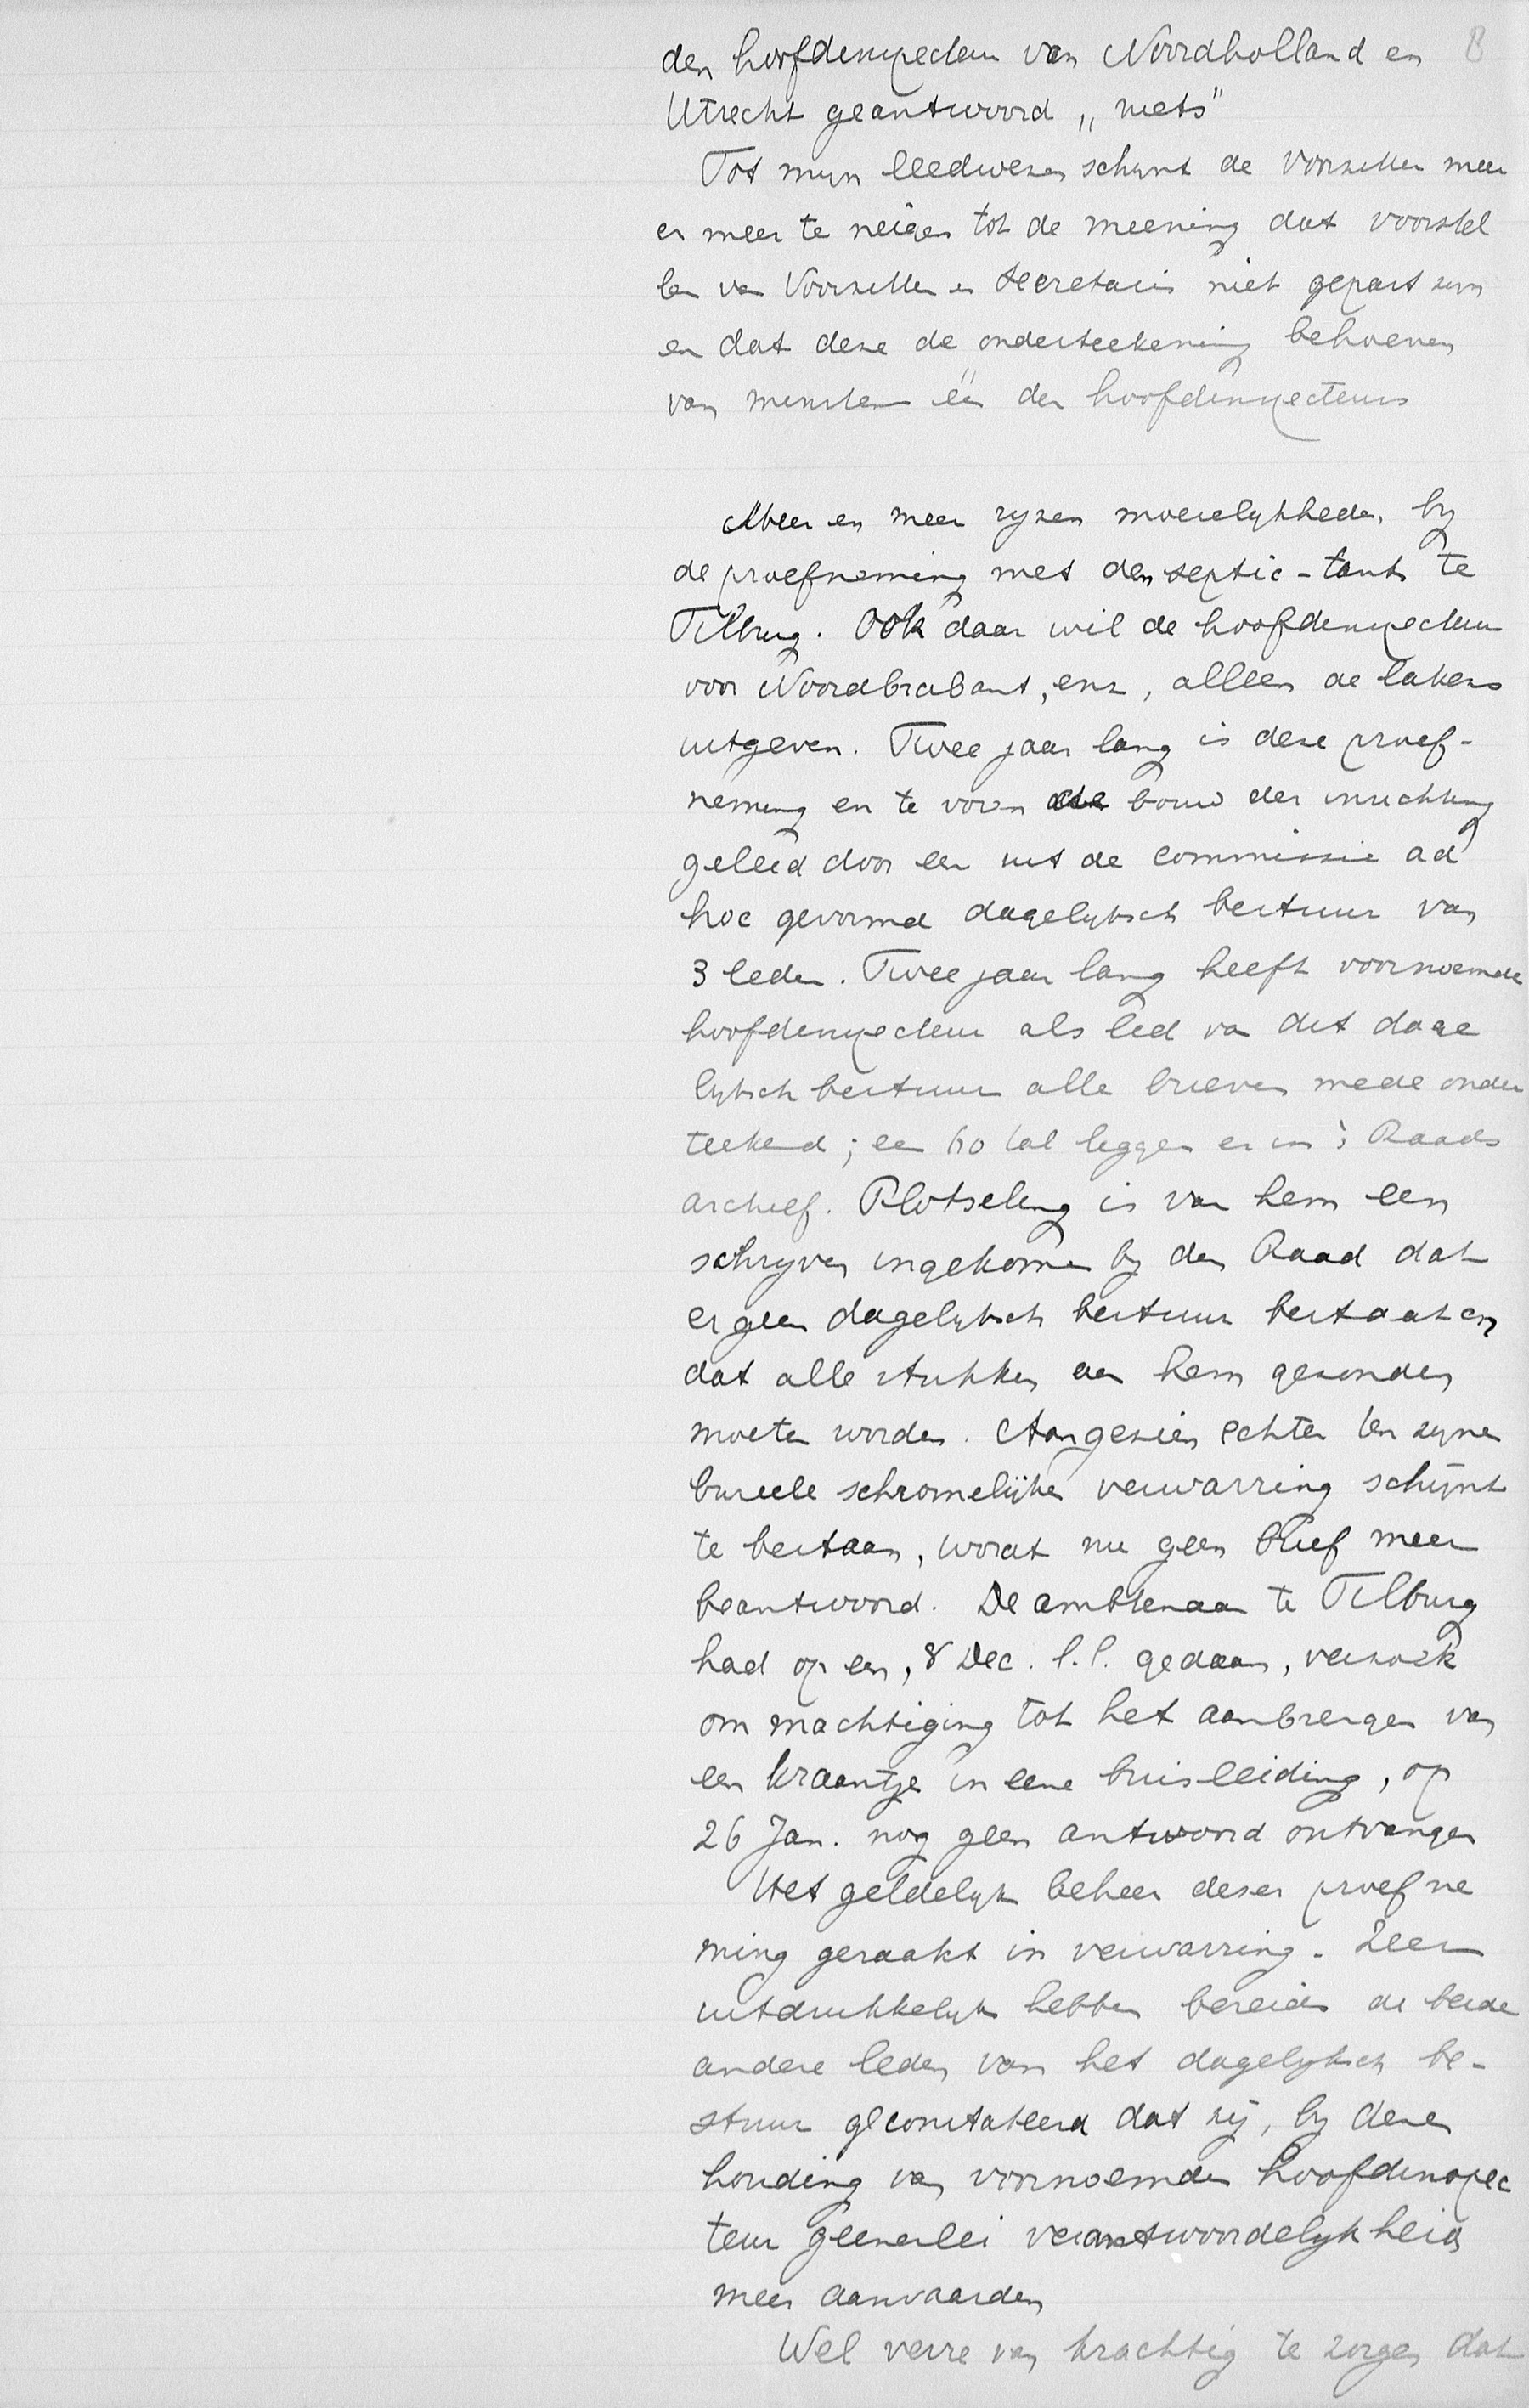 den hoofdinspecteur van Noordholland en 8
Utrecht geantwoord „niets"
Tot mijn leedwezen schijnt de Voorzitter meer
en meer te neigen tot de meening dat voorstel
len van Voorzitter en Secretaris niet gepast zijn
en dat deze de onderteekening behoeven
van minstens één der hoofdinspecteurs
Meer en meer rijzen moeielijkheden bij
de proefneming met den septic-tank te
Tilburg. Ook daar wil de hoofdinspecteur
voor Noordbrabant, enz, alleen de lakens
uitgeven. Twee jaar lang is deze proef-
neming en te voren de bouw der inrichting
geleid door een uit de commissie ad
hoc gevormd dagelijksch bestuur van
3 leden. Twee jaar lang heeft voornoemde
hoofdinspecteur als lid van dit dage
lijksch bestuur alle brieven mede onder
teekend; een 60 tal liggen er in 's Raads
archief. Plotseling is van hem een
schrijven ingekomen bij den Raad dat
er geen dagelijksch bestuur bestaat en
dat alle stukken aan hem gezonden
moeten worden. Aangezien echter ten zijnen
bureele schromelijke verwarring schijnt
te bestaan, wordt nu geen brief meer
beantwoord. De ambtenaar te Tilburg
had op een, 8 Dec. l.l. gedaan, verzoek
om machtiging tot het aanbrengen van
een kraantje in eene buisleiding, op
26 Jan. nog geen antwoord ontvangen
Het geldelijk beheer dezer proefne
ming geraakt in verwarring. Zeer
uitdrukkelijk hebben bereids de beide
andere leden van het dagelijksch be-
stuur geconstateerd dat zij, bij deze
houding van voornoemden hoofdinspec
teur geenerlei verantwoordelijkheid
meer aanvaarden
Wel verre van krachtig te zorgen dat